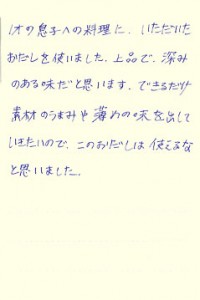 1才の息子への料理に、いただいた
おだしを使いました。上品で、深み
のある味だと思います。できるだけ
素材のうまみや薄めの味を出して
いきたいので、このおだしは使えるな
と思いました。